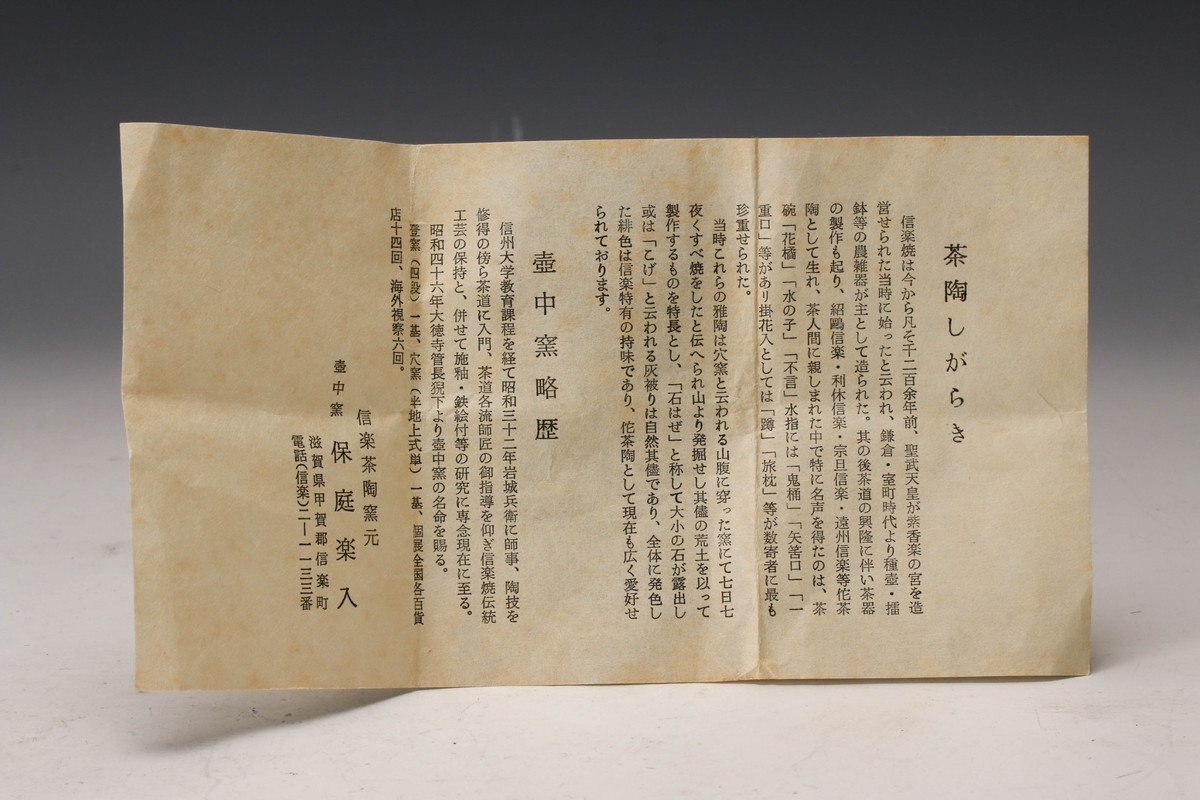 茶陶しがらき
信楽焼は今から凡そ千二百余年前、聖武天皇が紫香楽の宮を造
営せられた当時に始ったと云われ、鎌倉・室町時代より種壺・擂
鉢等の農雑器が主として造られた。其の後茶道の興隆に伴い茶器
の製作も起り、紹鷗信楽・利休信楽・宗旦信楽・遠州信楽等侘茶
陶として生れ、茶人間に親しまれた中で特に名声を得たのは、茶
碗「花橘」「水の子」「不言」水指には「鬼桶」「矢筈口」「一
重口」等があり掛花入としては「蹲」「旅枕」等が数寄者に最も
珍重せられた。
当時これらの雅陶は穴窯と云われる山腹に穿った窯にて七日七
夜くすべ焼をしたと伝へられ山より発掘せし其儘の荒土を以って
製作するものを特長とし、「石はぜ」と称して大小の石が露出し
或は「こげ」と云われる灰被りは自然其儘であり、全体に発色し
た緋色は信楽特有の持味であり、侘茶陶として現在も広く愛好せ
られております。
壺中窯略歴
信州大学教育課程を経て昭和三十二年岩城兵衛に師事、陶技を
修得の傍ら茶道に入門、茶道各流師匠の御指導を仰ぎ信楽焼伝統
工芸の保持と、併せて施釉・鉄絵付等の研究に専念現在に至る。
昭和四十六年大徳寺管長猊下より壺中窯の名命を賜る。
登窯(四段)一基、穴窯(半地上式単)一基、個展全国各百貨
店十四回、海外視察六回。
信楽茶陶窯元
壺中窯 保庭楽入
滋賀県甲賀郡信楽町
電話(信楽)二―一一三三番